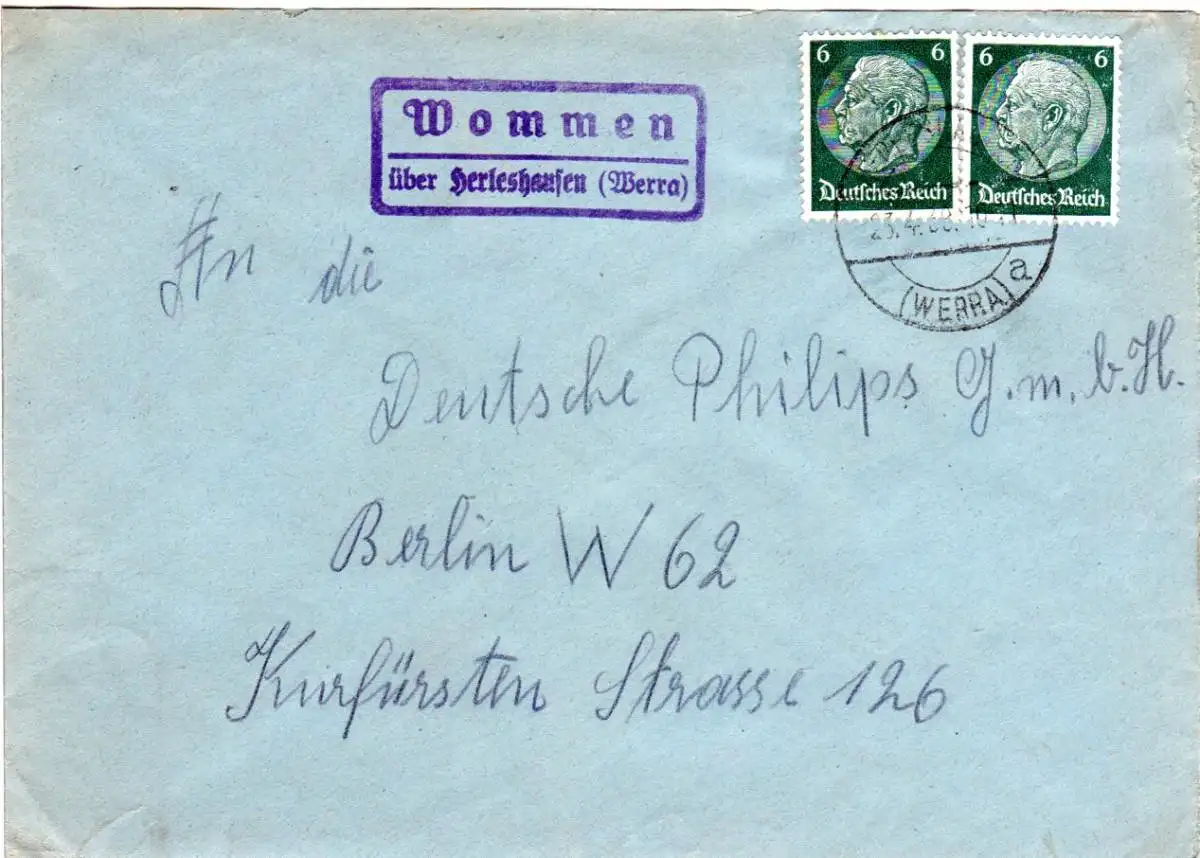 6 6
6 6
Deutsches Reich
Deutsches Reich
(WERRA) a
Wommen
über Herleshausen (Werra)
An die
Deutsche Philips G.m.b.H.
Berlin W 62
Kurfürsten Strasse 126